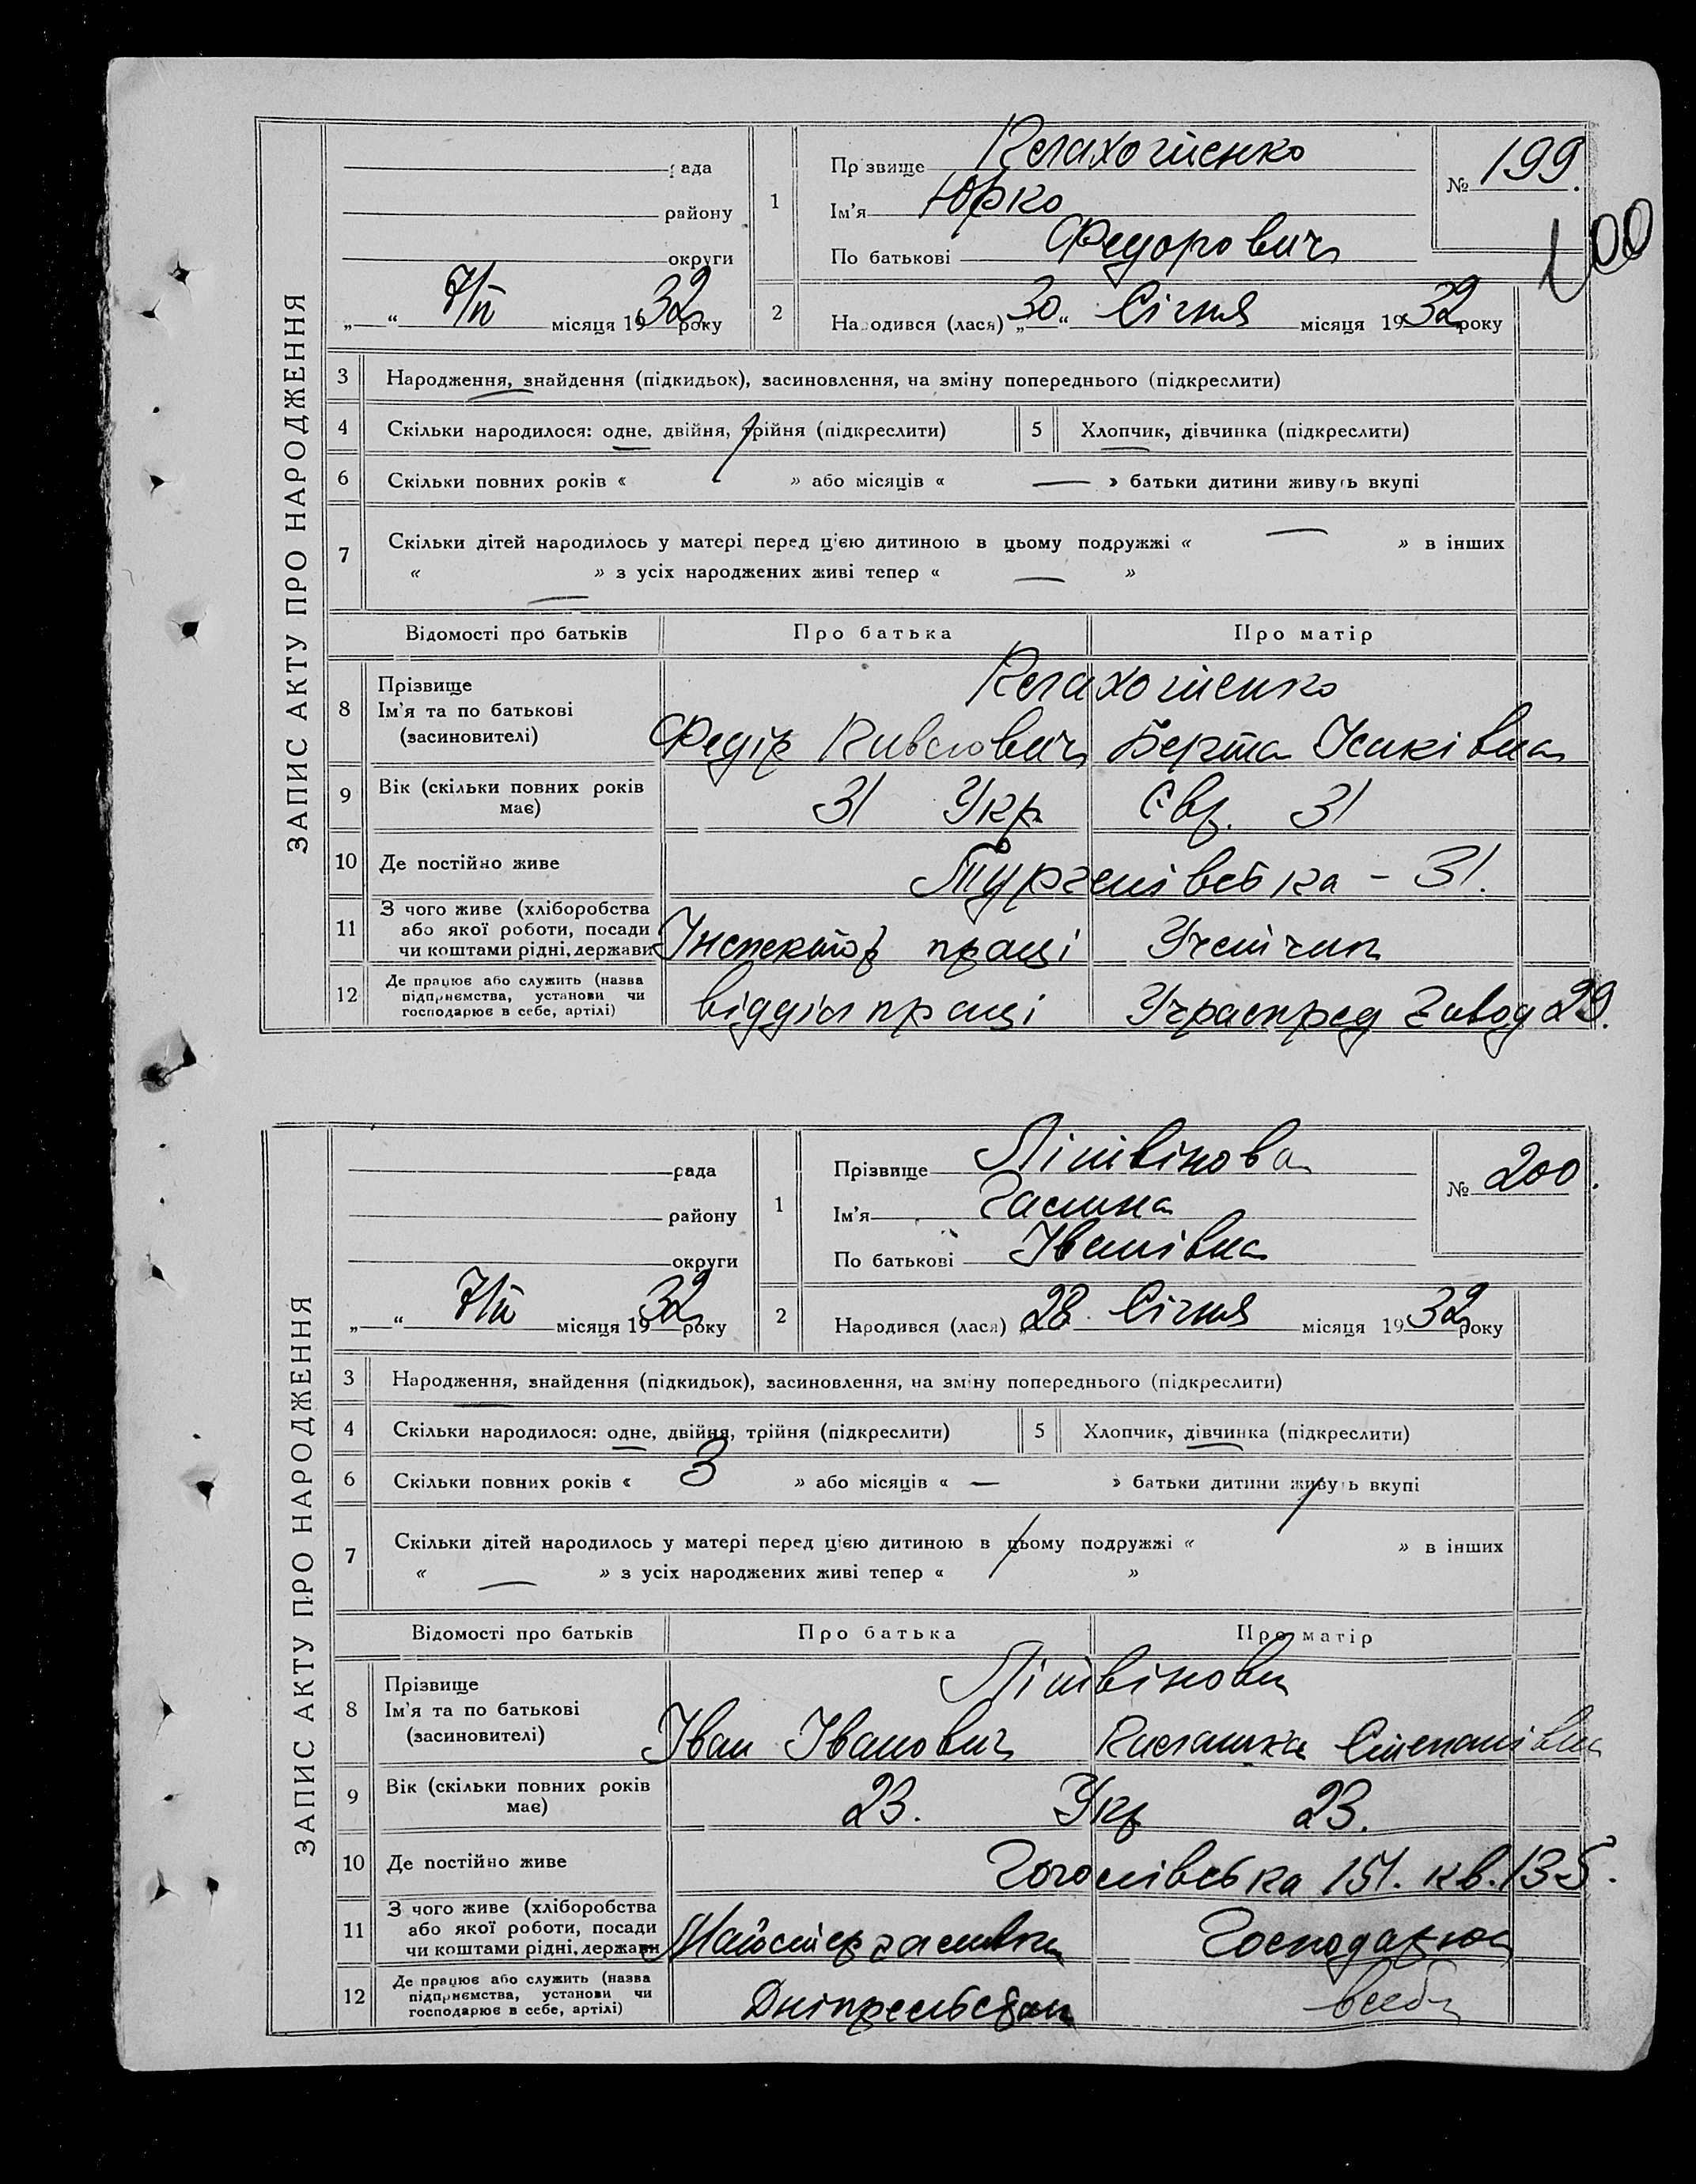 ЗАПИС АКТУ ПРО НАРОДЖЕННЯ
рада
району
округи
7/II місяця 1932 року
1
Прізвище
Ім'я Юрко
По батькові Федорович
№ 199.
100
2 Народився (лася) „30“ Січня місяця 1932 року
3 Народження, знайдення (підкидьок), засиновлення, на зміну попереднього (підкреслити)
4 Скільки народилося: одне, двійня, трійня (підкреслити)
5 Хлопчик, дівчинка (підкреслити)
6 Скільки повних років « » або місяців « — » батьки дитини живуть вкупі
7 Скільки дітей народилось у матері перед цією дитиною в цьому подружжі « — » в інших
« — » з усіх народжених живі тепер « — »
Відомості про батьків Про батька Про матір
8 Прізвище
Ім'я та по батькові
(засиновителі)
Федір Берта Ісаківна
9 Вік (скільки повних років має)
31 Укр Євр. 31
10 Де постійно живе Тургенівська - 31.
11 З чого живе (хліборобства
або якої роботи, посади
чи коштами рідні, держави
Інспектор праці
12 Де працює або служить (назва
підприємства, установи чи
господарює в себе, артілі)
відділ праці Учраспред Завод 29.
ЗАПИС АКТУ ПРО НАРОДЖЕННЯ
рада
району
округи
7/II місяця 1932 року
1
Прізвище Літвінова
Ім'я Галина
По батькові Іванівна
№ 200.
2 Народився (лася) „28 Січня місяця 1932 року
3 Народження, знайдення (підкидьок), засиновлення, на зміну попереднього (підкреслити)
4 Скільки народилося: одне, двійня, трійня (підкреслити)
5 Хлопчик, дівчинка (підкреслити)
6 Скільки повних років « 3 » або місяців « — » батьки дитини живуть вкупі
7 Скільки дітей народилось у матері перед цією дитиною в цьому подружжі « » в інших
« — » з усіх народжених живі тепер « »
Відомості про батьків Про батька Про матір
8 Прізвище
Ім'я та по батькові
(засиновителі)
Літвінови
Іван Іванович Степанівна
9 Вік (скільки повних років має)
23. Укр 23.
10 Де постійно живе Гоголівська 151. кв. 135.
11 З чого живе (хліборобства
або якої роботи, посади
чи коштами рідні, держави
Майстер Господарює
12 Де працює або служить (назва
підприємства, установи чи
господарює в себе, артілі)